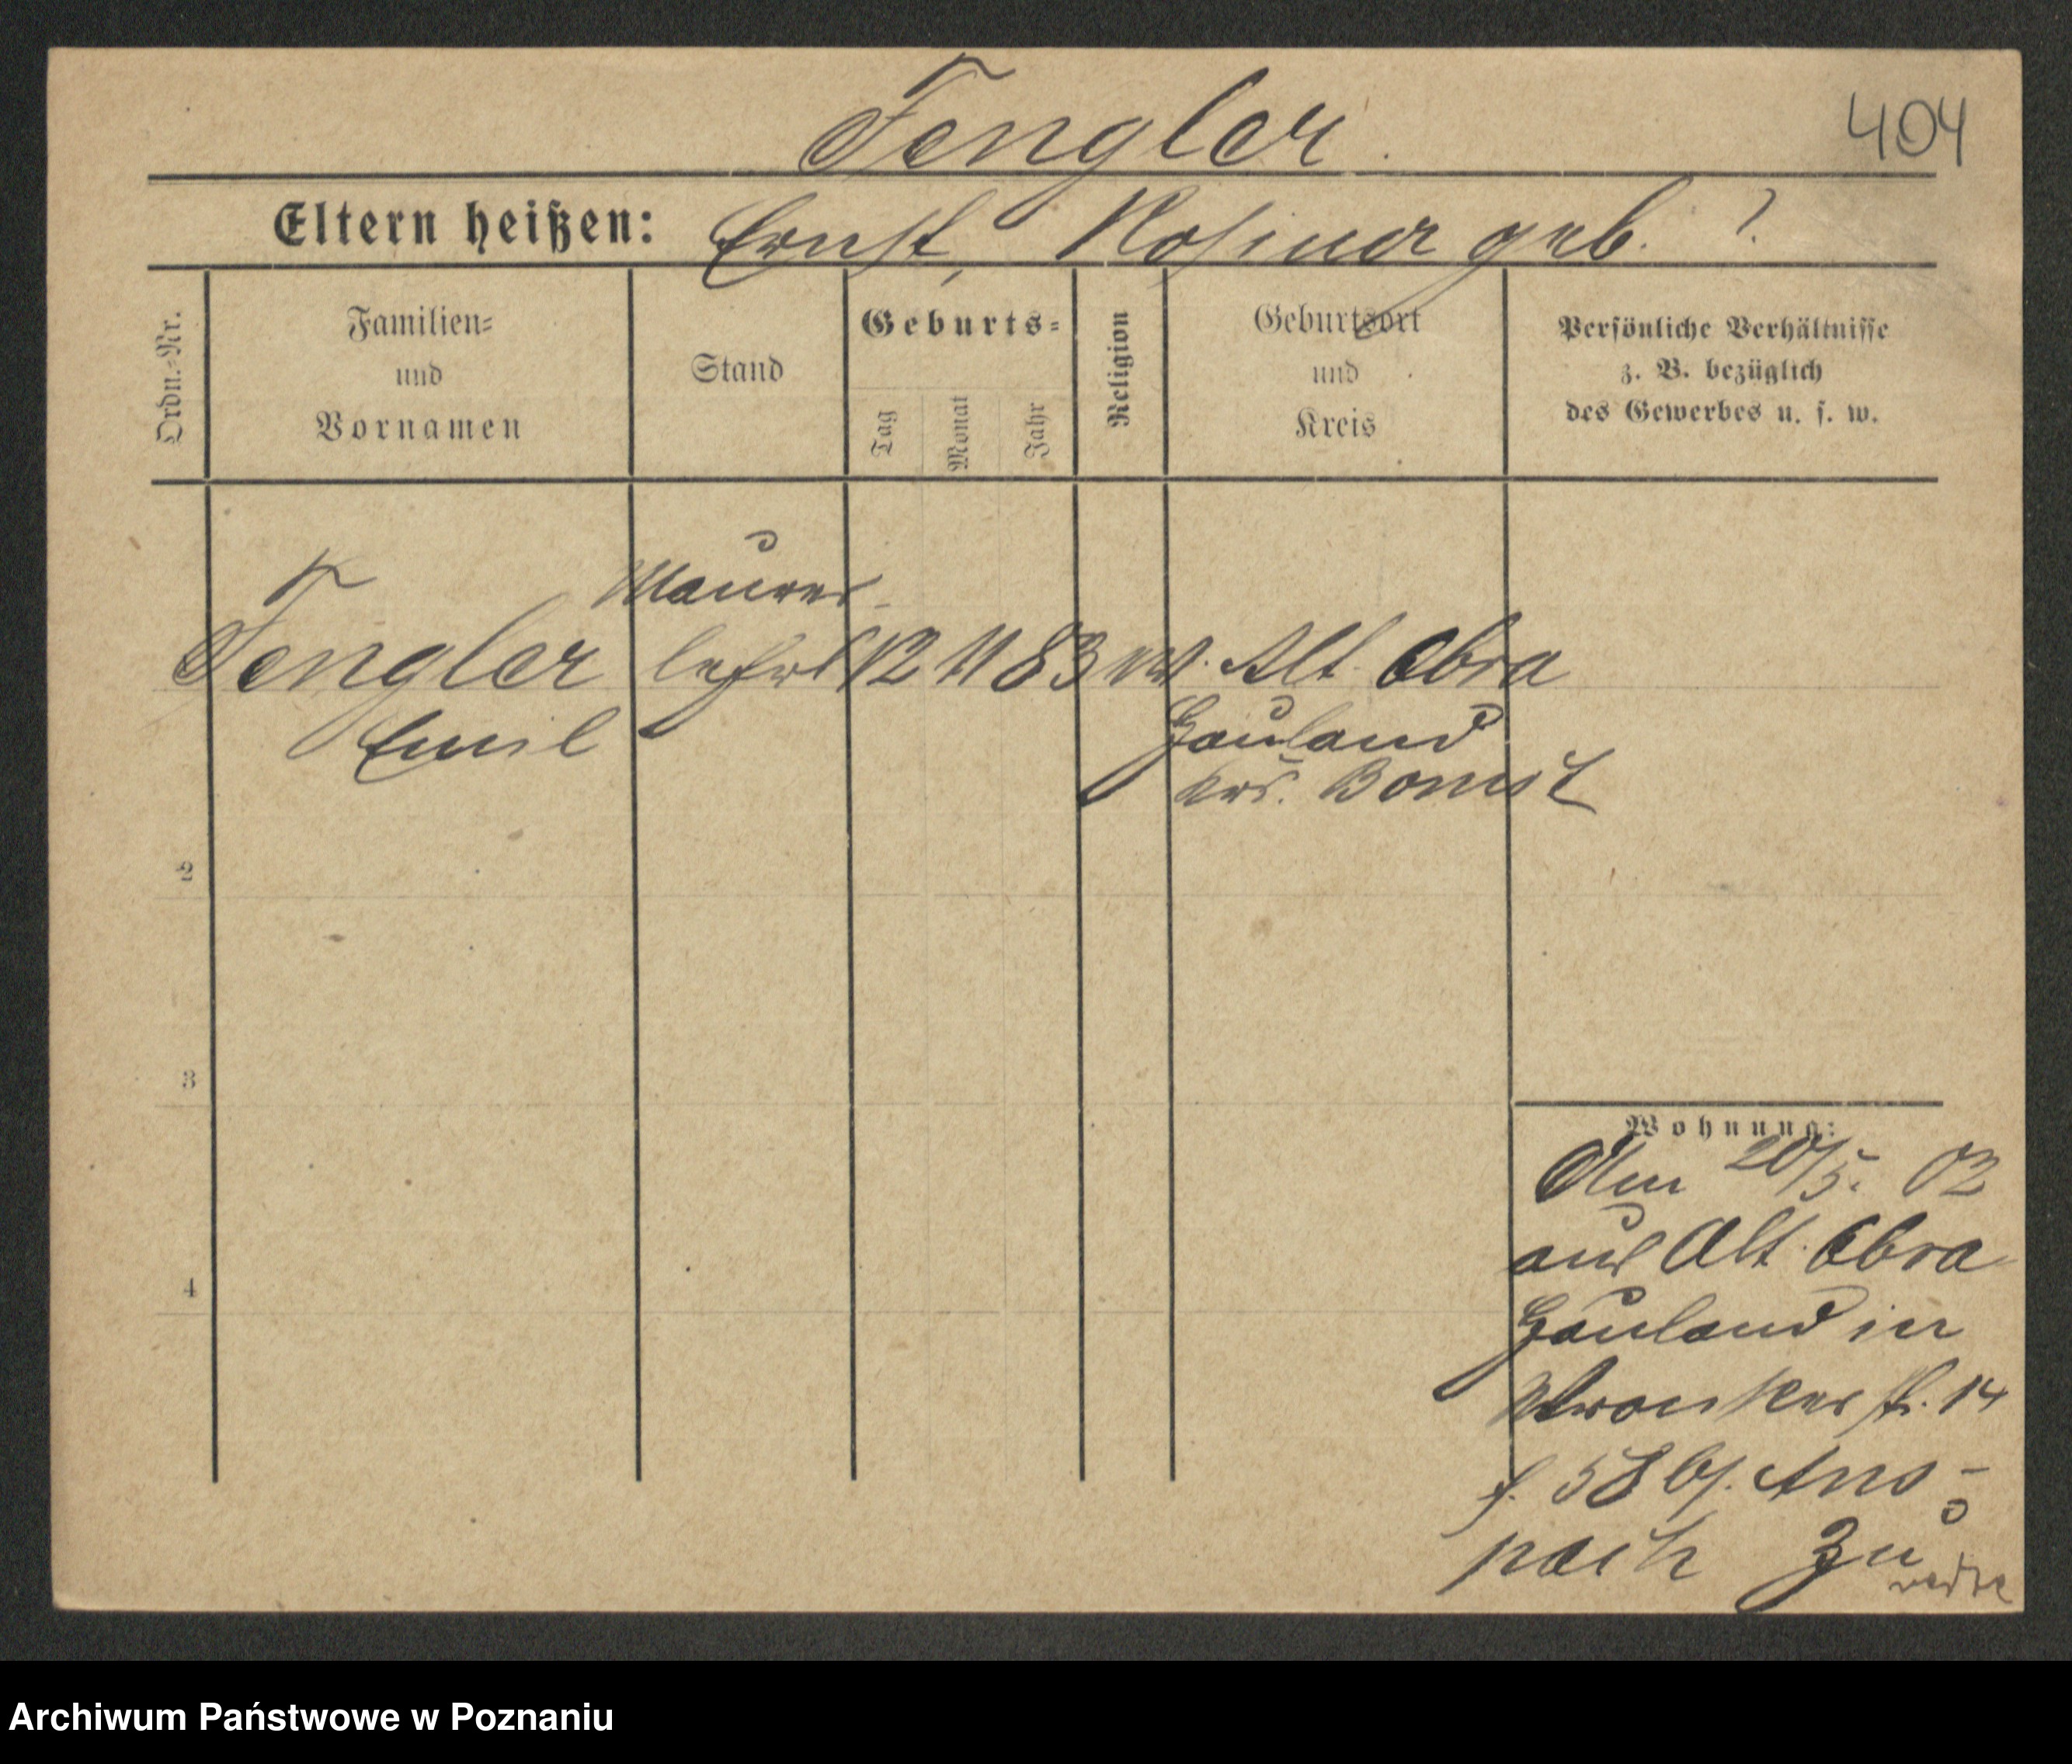 Fengler
404
Eltern heißen: Ernst, Rosina geb. ?
Ordn.-Nr.
Familien-
und
Vornamen
Stand
Geburts-
Tag
Monat
Jahr
Religion
Geburtsort
und
Kreis
Persönliche Verhältnisse
z. B. bezüglich
des Gewerbes u. s. w.
Maurer
Fengler lehrl 12 11 83 ev. Alt Obra
Emil
Hauland
Krs. Bomst
2
3
4
Wohnung:
Am 20/5. 02
aus Alt Obra
Hauland in
Wronkerstr. 14
b/. Ans-
pach Zu
Archiwum Państwowe w Poznaniu